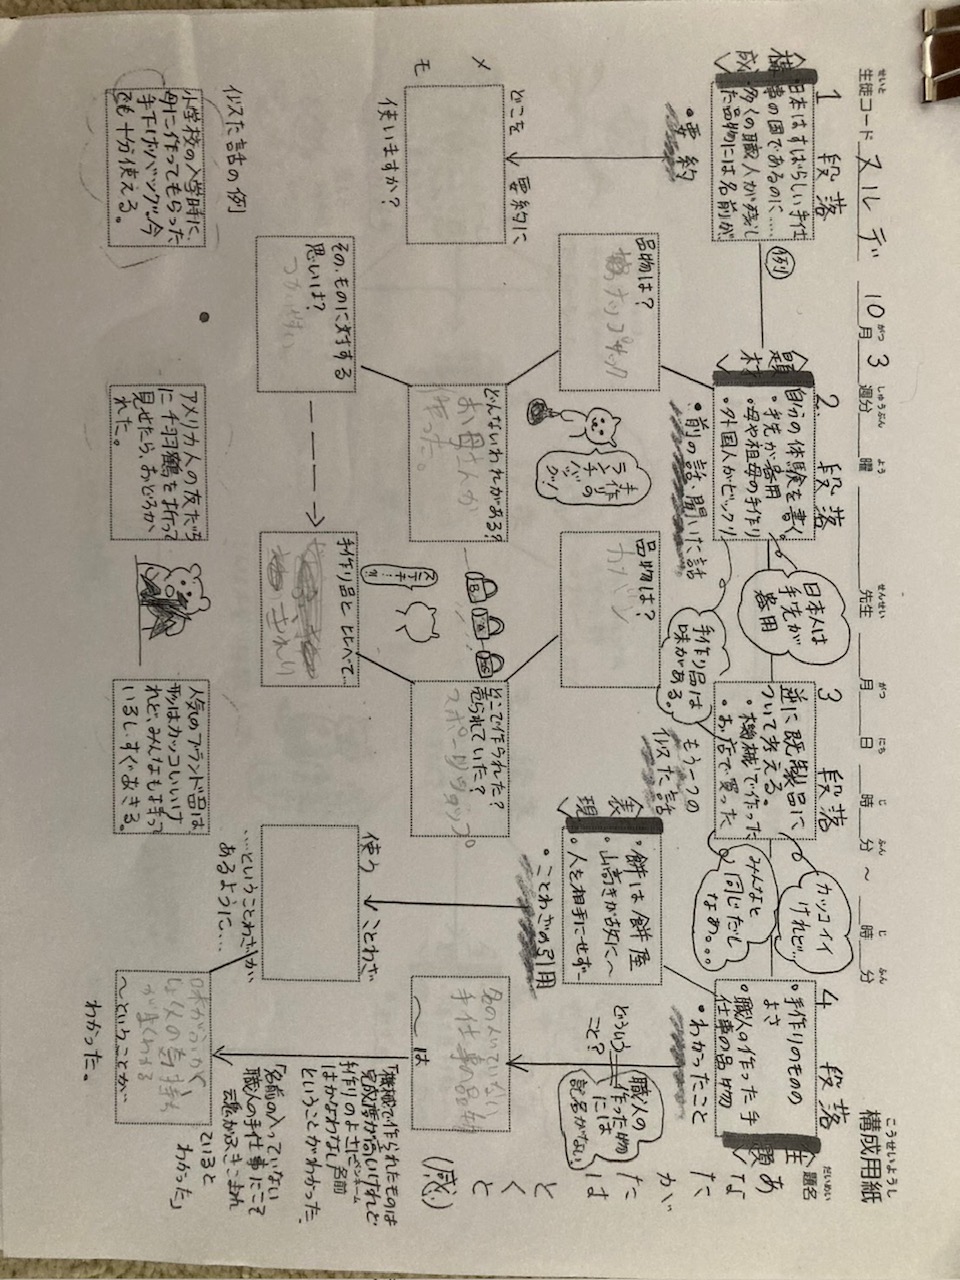 構成用紙
こうせいようし
生徒コード ヌルデ 10月3週分 曜 先生 月 日 時 分 ～ 時 分
せいと がつ しゅうぶん よう せんせい がつ にち じ ふん じ ふん
題名
だいめい
あなたがたはとくと
(感)
1段落
構成
・日本はすばらしい手仕
事の国であるのに……
多くの職人が残し
た品物には名前が
・要約
どこを要約に
使いますか？
メモ
例
2段落
題材
自分の体験を書く
・手先が器用
・母や祖母の手作り
・外国人がビックリ
・前の話、聞いた話
日本人は
手先が
器用
品物は？
どんないわれがある？
お母さんが
作った。
その、ものに対する
思いは？
手作り
ランチの
バッグッ！
3段落
逆に既製品に
ついて考える。
・機械で作った
・お店で買った
もう一つの
似た話
手作り品は
味がある。
カッコイイ
けれど…
みんなと
同じだし
なあ。。。
品物は？
カバン
どこで作られた？
売られていた？
手作り品とくらべて…
表現
・餅は餅屋
・山高きが故に〜
・人を相手にせず〜
・ことわざの引用
ことわざ
使う
……ということわざが、
あるように…
4段落
主題
・手作りのものの
よさ
・職人の作った手
仕事の品物
・わかったこと
どういう
こと？
職人の
作った物
には
記名がない
名の入っていない
手仕事の品物
〜は
〜ということが
わかった。
「機械で作られたものは
完成度が高いけれど
手作りのよさに
はかなわない
ということがわかった」
「名前の入っていない
職人の手仕事にこそ
魂がふきこまれ
ていると
わかった」
似た話の例
小学校の入学時に、
母に作ってもらった
手下げバッグ。今
でも十分使える。
アメリカ人の友だち
に千羽鶴を折って
見せたら、おどろか
れた。
人気のブランド品は
形はカッコいいけ
れど、みんなもよもって
いるし、すぐあきる。